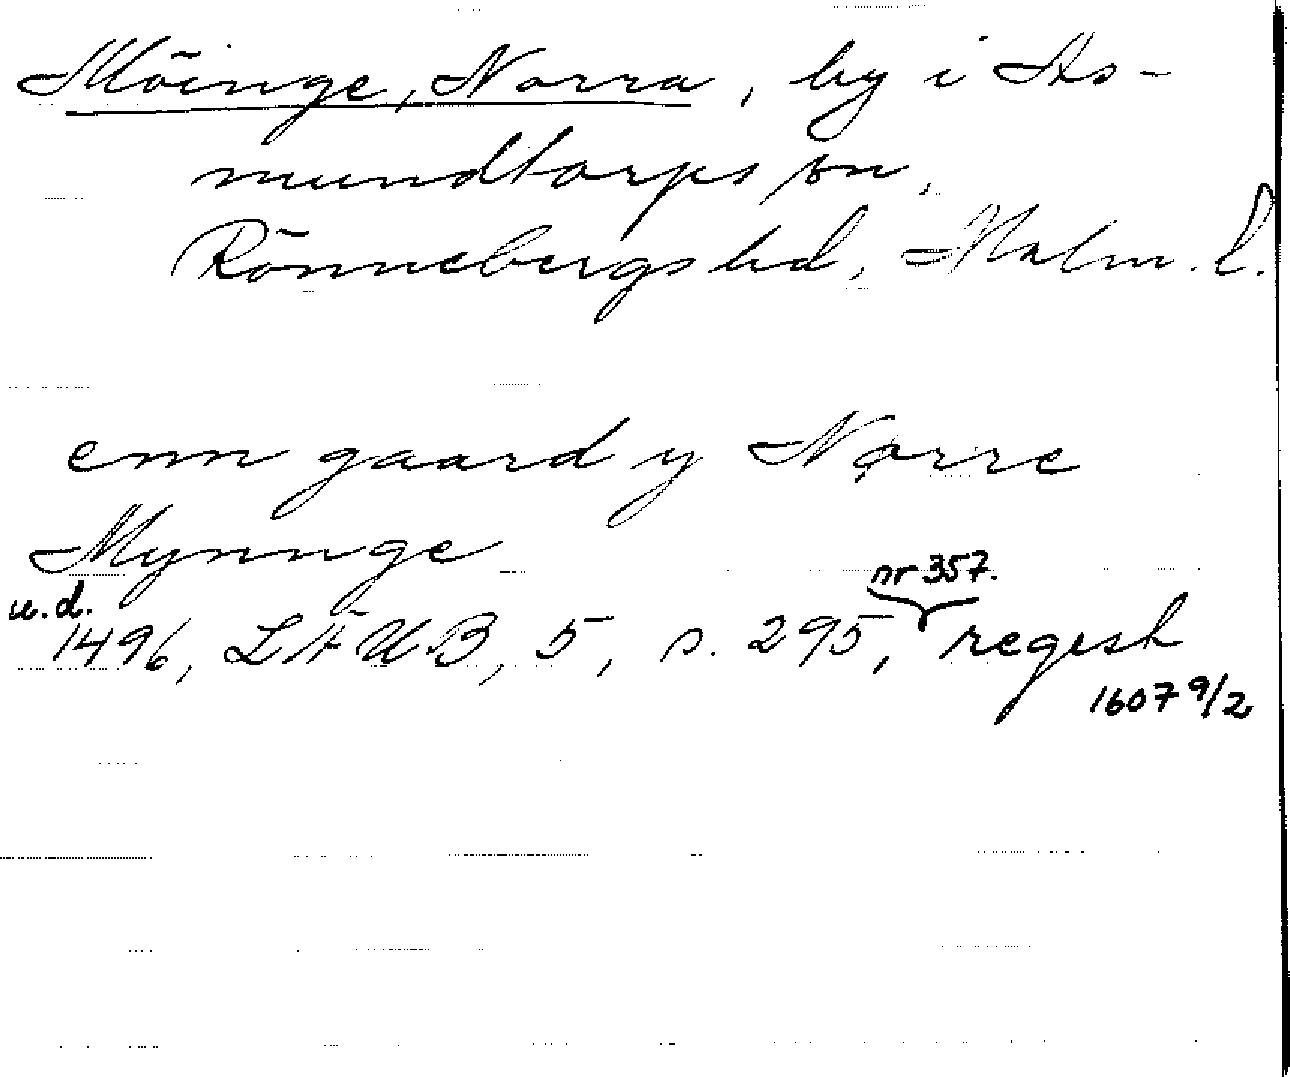 Möinge, Norra, by i As-
mundtorps sn,
Rönnebergs hd, Malm. l.
enn gaard y Nørre
Mynnge
nr 357.
u.d.
1496, LÆUB, 5, s. 295, regest
1607 9/2